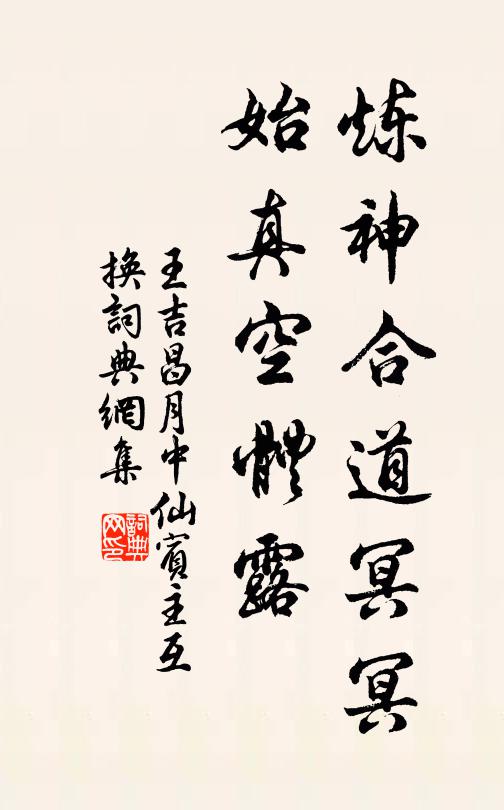 炼神合道冥冥
始真空體露
王吉昌月中仙賓主互
換詞典網集
詞典
网印